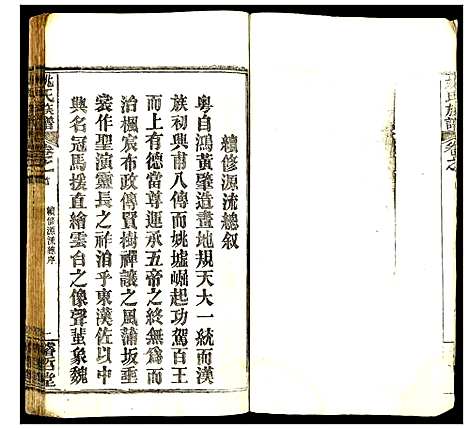 續修源流總叙
粤自鴻黃肇造畫地規天大一統而漢
族初興甫八傳而姚墟崛起功駕百王
而上有德當尊運承五帝之終無為而
治楓宸布政傳賢樹禪讓之風蒲坂垂
裳作聖演靈長之祚洎乎東漢佐以中
興名冠馬援直繪雲台之像聲蜚象魏
姚氏族譜
卷之首
續修源流總序
一
睿哲堂
姚氏族譜
卷之